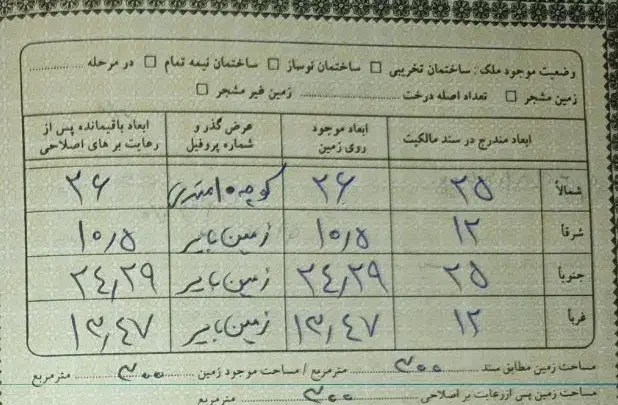 وضعیت موجود ملک : ساختمان تخریبی □ ساختمان نوساز □ ساختمان نیمه تمام □ در مرحله ..........
زمین مشجر □ تعداد اصله درخت .......... زمین غیر مشجر □
ابعاد مندرج در سند مالکیت ابعاد موجود روی زمین عرض گذر و شماره پروفیل ابعاد باقیمانده پس از رعایت بر های اصلاحی
شمالاً ۲۵ ۲۶ کوچه ۱۰ متری ۲۶
شرقاً ۱۲ ۱۰٫۵ زمین بایر ۱۰٫۵
جنوباً ۲۵ ۲۴٫۲۹ زمین بایر ۲۴٫۲۹
غرباً ۱۲ ۱۳٫۴۷ زمین بایر ۱۳٫۴۷
مساحت زمین مطابق سند ۳۰۰ مترمربع / مساحت موجود زمین ۳۰۰ مترمربع
مساحت زمین پس از رعایت بر اصلاحی ۳۰۰ مترمربع